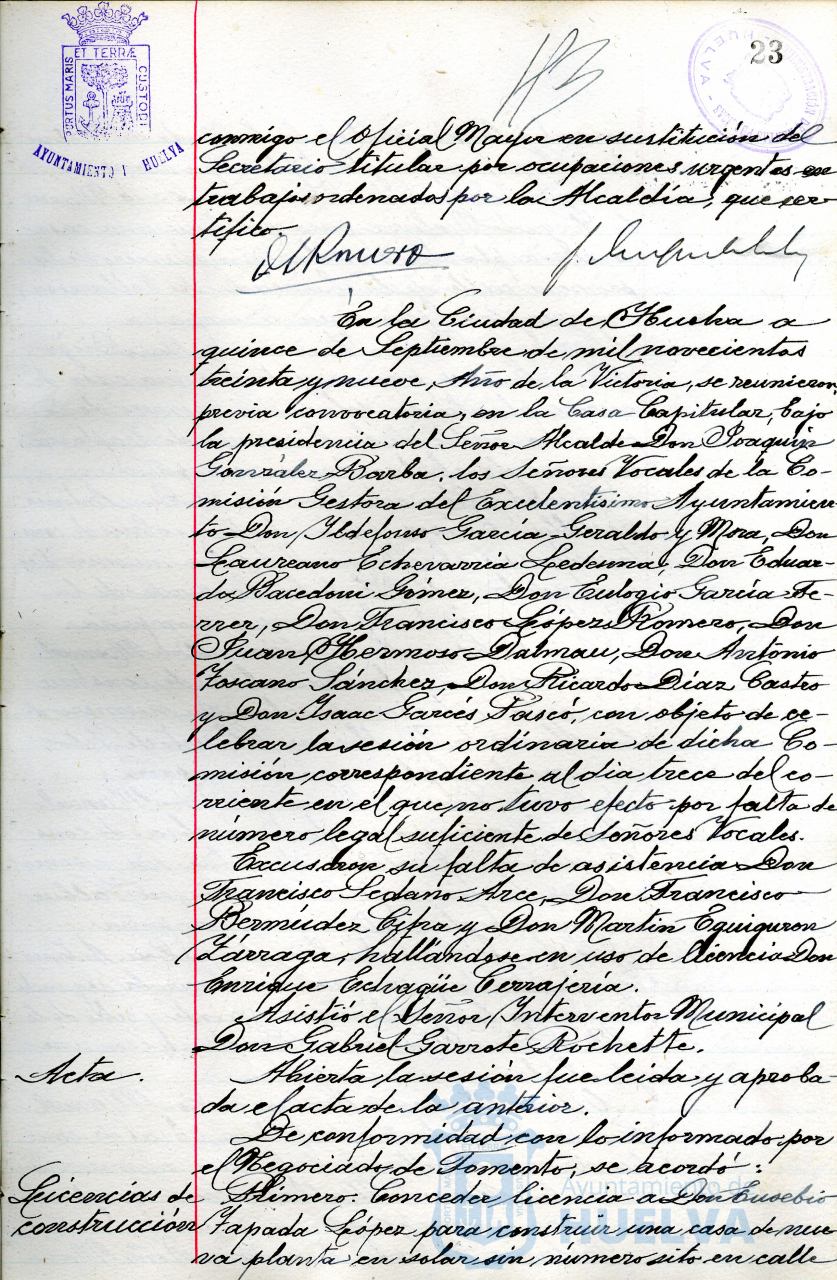 PORTUS MARIS ET TERRÆ CUSTODI
AYUNTAMIENTO HUELVA
HUELVA
23
conmigo el Oficial Mayor en sustitución del
Secretario titular por ocupaciones urgentes en
trabajos ordenados por la Alcaldía, que cer-
tifico.
En la Ciudad de Huelva a
quince de Septiembre de mil novecientos
treinta y nueve, Año de la Victoria, se reunieron,
previa convocatoria, en la Casa Capitular, bajo
la presidencia del Señor Alcalde Don Joaquín
González Barba, los Señores Vocales de la Co-
misión Gestora del Excelentísimo Ayuntamien-
to Don Ildefonso García Geraldo y Mora, Don
Laureano Echevarría Ledesma, Don Eduar-
do Bacedoni Gómez, Don Eulogio García Fe-
rrer, Don Francisco López Romero, Don
Juan Hermoso Dalmau, Don Antonio
Toscano Sánchez, Don Ricardo Díaz Castro
y Don Isaac Garcés Pascó, con objeto de ce-
lebrar la sesión ordinaria de dicha Co-
misión correspondiente al día trece del co-
rriente en el que no tuvo efecto por falta de
número legal suficiente de Señores Vocales.
Excusaron su falta de asistencia Don
Francisco Sedano Arce, Don Francisco
Bermúdez Cifra y Don Martín Eguiguren
Zárraga, hallándose en uso de licencia Don
Enrique Echagüe Cerrajería.
Asistió el Señor Interventor Municipal
Don Gabriel Garrote Rochette.
Acta.
Abierta la sesión fue leída y aproba-
da el acta de la anterior.
De conformidad con lo informado por
el Negociado de Fomento, se acordó:
Licencias de
construcción
Primero: Conceder licencia a Don Eusebio
Zapada López para construir una casa de nue-
va planta en solar sin número sito en calle
Ayuntamiento de
HUELVA